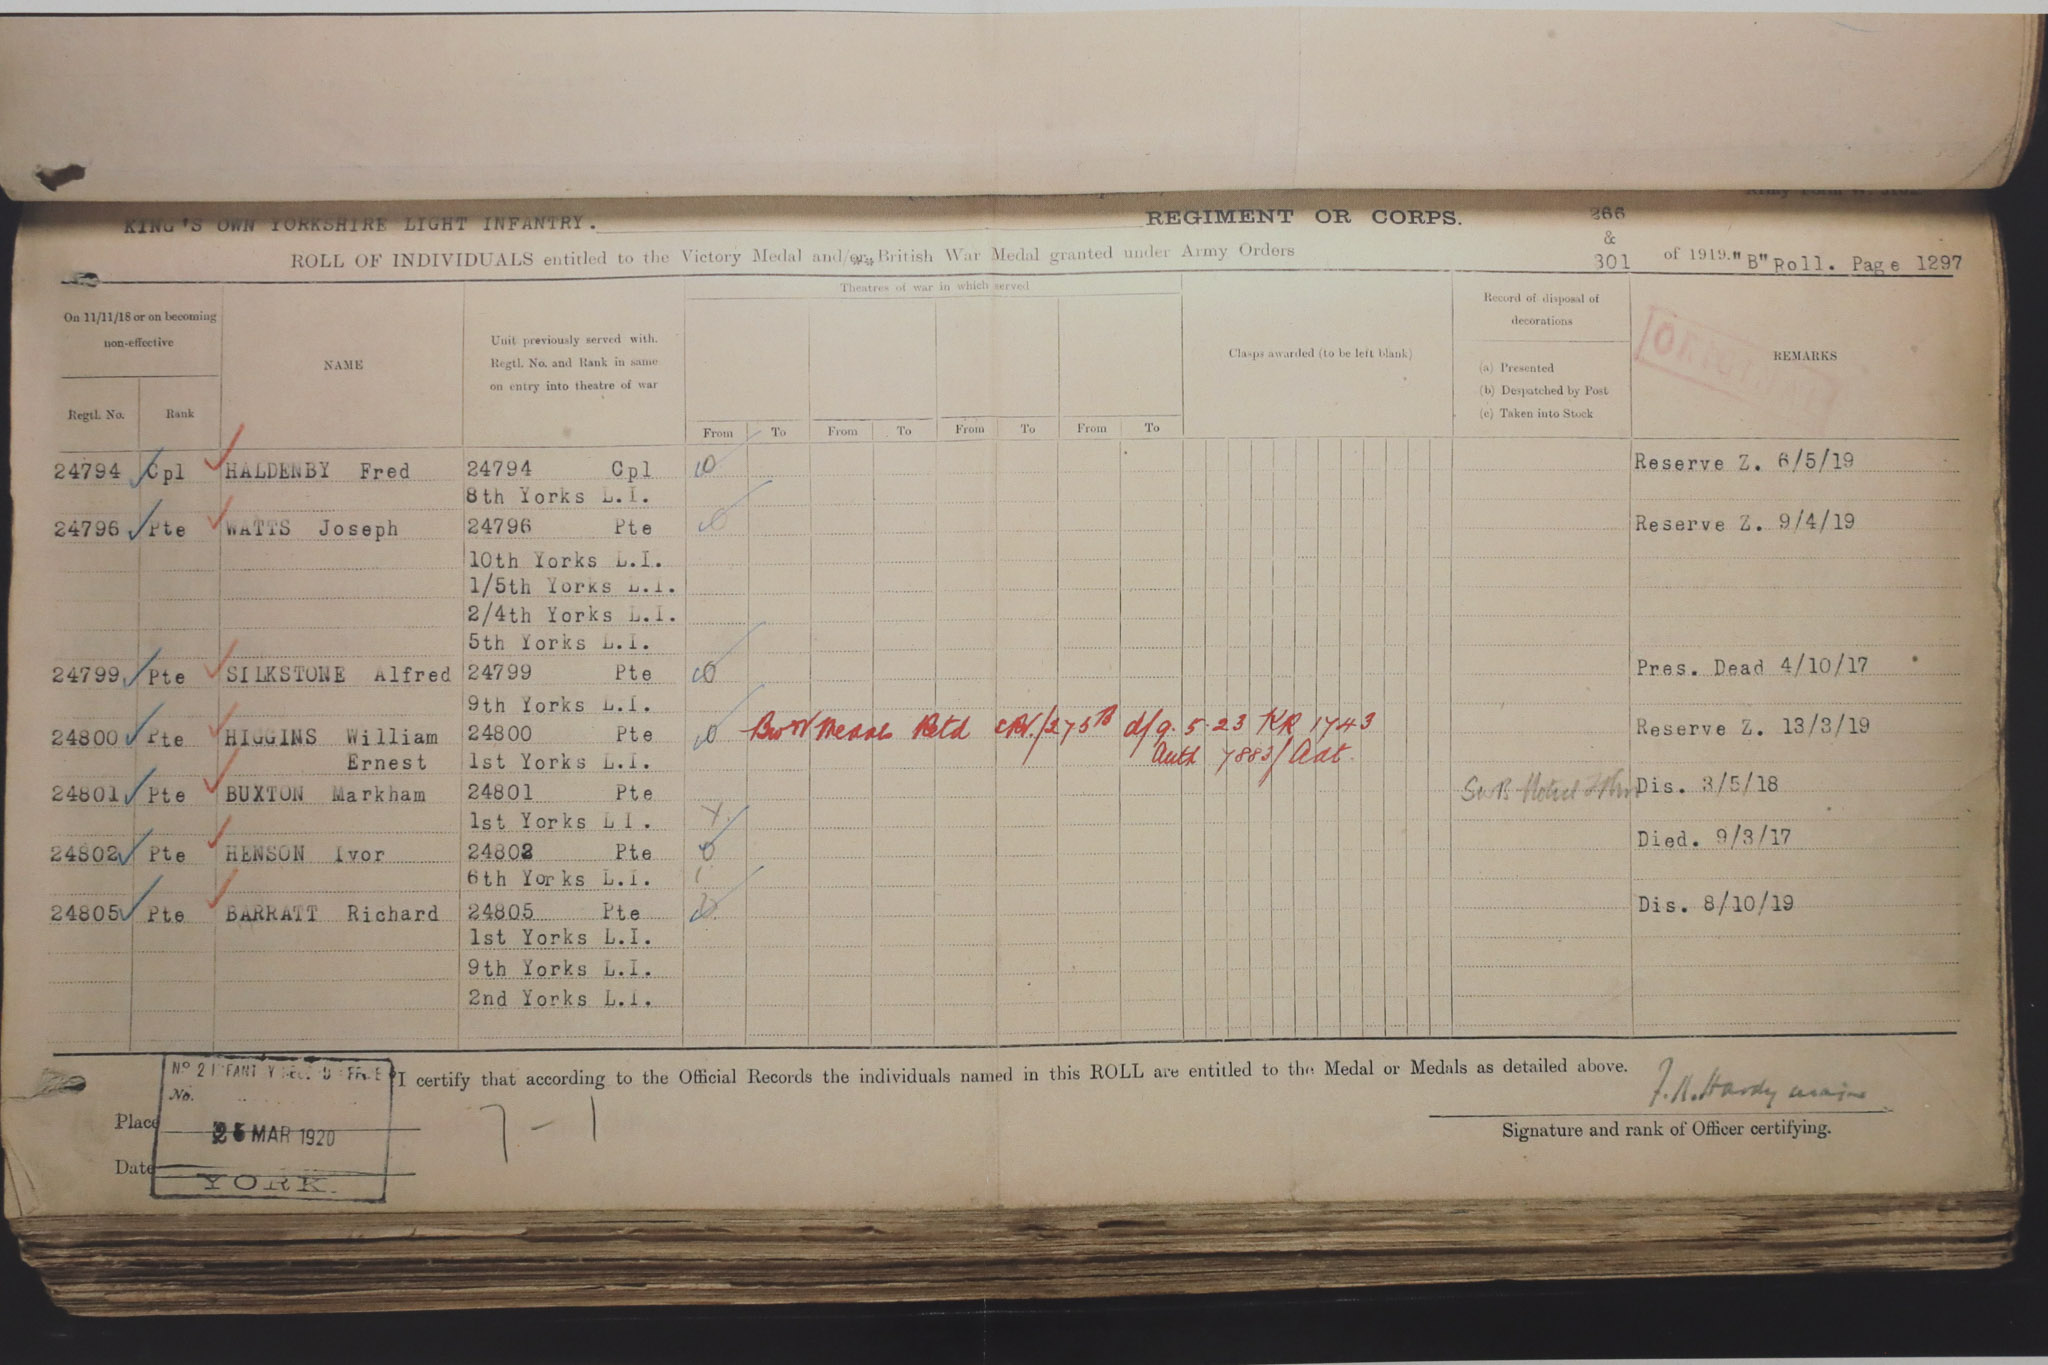 KING'S OWN YORKSHIRE LIGHT INFANTRY. REGIMENT OR CORPS. 266
&
301
ROLL OF INDIVIDUALS entitled to the Victory Medal and/or British War Medal granted under Army Orders of 1919. "B" Roll. Page 1297
Theatres of war in which served
On 11/11/18 or on becoming
non-effective
Regtl. No. Rank
NAME
Unit previously served with.
Regtl. No. and Rank in same
on entry into theatre of war
From To From To From To From To
Clasps awarded (to be left blank)
Record of disposal of
decorations
(a) Presented
(b) Despatched by Post
(c) Taken into Stock
REMARKS
ORIGINAL
24794 Cpl HALDENBY Fred 24794 Cpl Reserve Z. 6/5/19
8th Yorks L.I.
24796 Pte WATTS Joseph 24796 Pte Reserve Z. 9/4/19
10th Yorks L.I.
1/5th Yorks L.I.
2/4th Yorks L.I.
5th Yorks L.I.
24799 Pte SILKSTONE Alfred 24799 Pte Pres. Dead 4/10/17
9th Yorks L.I.
24800 Pte HIGGINS William 24800 Pte Medals Retd d/9.5.23 KR 1743 Reserve Z. 13/3/19
Ernest 1st Yorks L.I. Auth 7883/Adt.
24801 Pte BUXTON Markham 24801 Pte Dis. 3/5/18
1st Yorks L I.
24802 Pte HENSON Ivor 24802 Pte Died. 9/3/17
6th Yorks L.I.
24805 Pte BARRATT Richard 24805 Pte Dis. 8/10/19
1st Yorks L.I.
9th Yorks L.I.
2nd Yorks L.I.
I certify that according to the Official Records the individuals named in this ROLL are entitled to the Medal or Medals as detailed above.
Nº 2 INFANTRY RECORD OFFICE
No.
Place
MAR 1920
Date
YORK.
7-1
Hardy major
Signature and rank of Officer certifying.